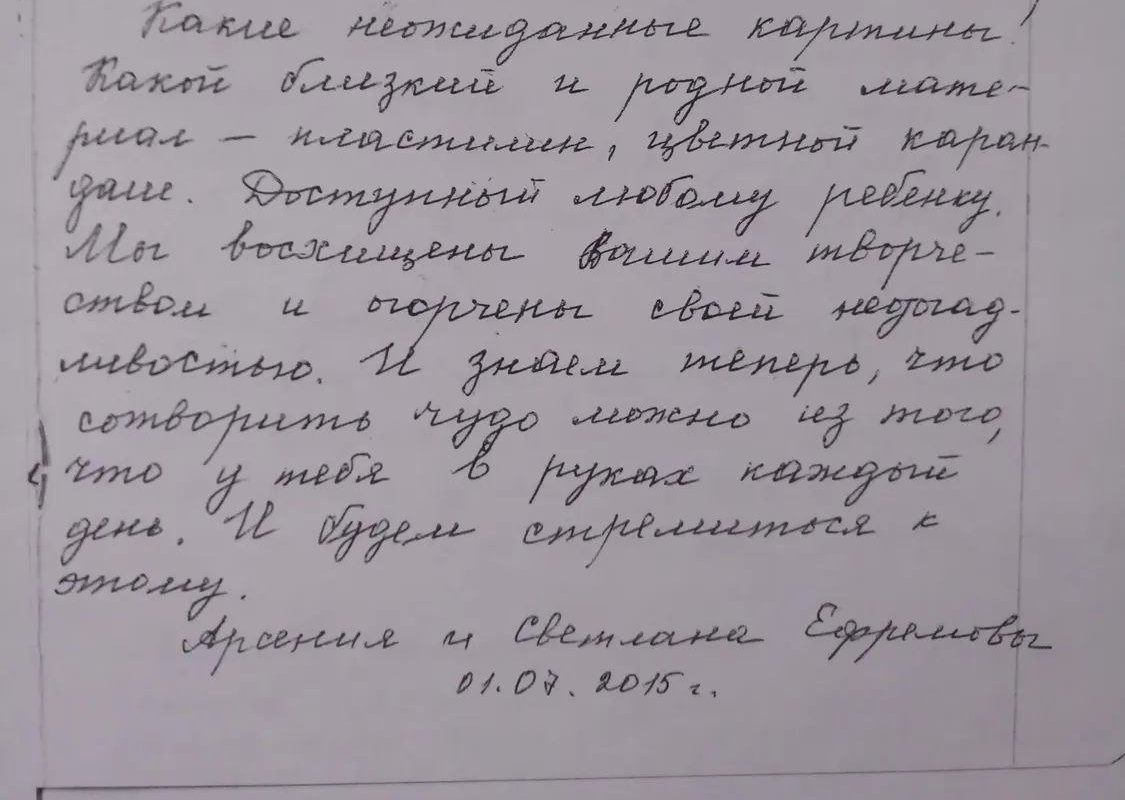 Какие неожиданные картины!
Какой близкий и родной мате-
риал – пластилин, цветной каран-
даш. Доступный любому ребенку.
Мы восхищены Вашим творче-
ством и огорчены своей недогад-
ливостью. И знаем теперь, что
сотворить чудо можно из того,
что у тебя в руках каждый
день. И будем стремиться к
этому.
Арсения и Светлана Ефремовы
01.07.2015 г.